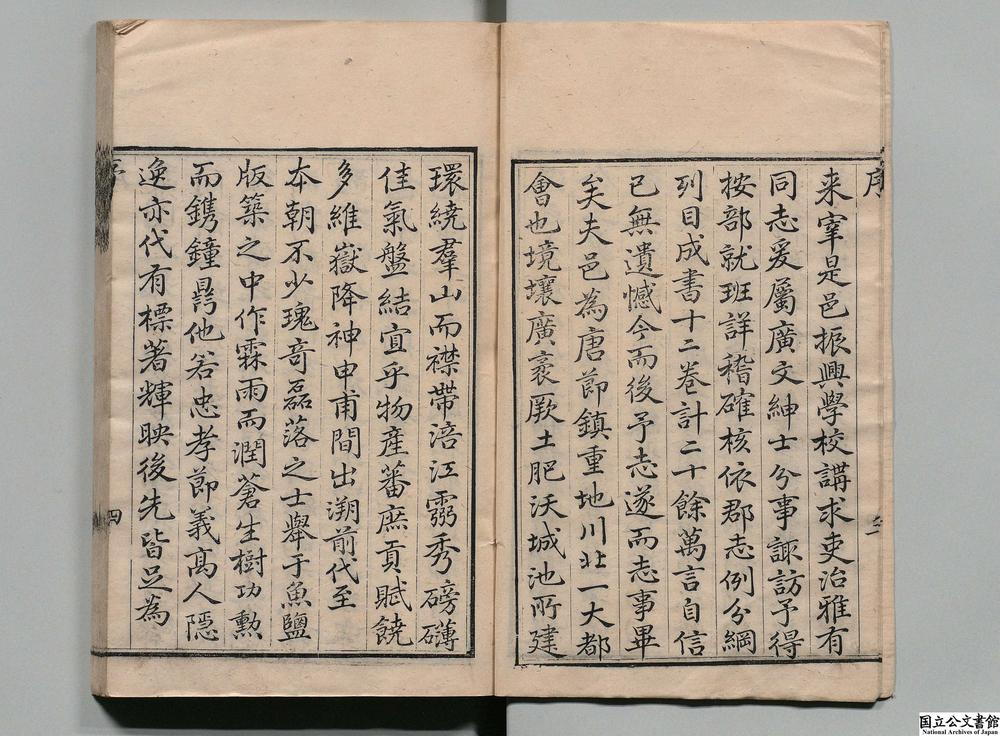 序
来宰是邑振興學校講求吏治雅有
同志爰屬廣文紳士分事諏訪予得
按部就班詳稽確核依郡志例分綱
列目成書十二卷計二十餘萬言自信
已無遺憾今而後予志遂而志事畢
矣夫邑為唐節鎮重地川北一大都
會也境壤廣袤厥土肥沃城池所建
環繞羣山而襟帶涪江靈秀磅礴
佳氣盤結宜乎物産蕃庶貢賦饒
多維嶽降神申甫間出溯前代至
本朝不少瑰竒磊落之士舉于魚鹽
版築之中作霖雨而潤蒼生樹功勲
而鐫鐘鼎他若忠孝節義高人隱
逸亦代有標著輝映後先皆足為
序
四
国立公文書館
National Archives of Japan